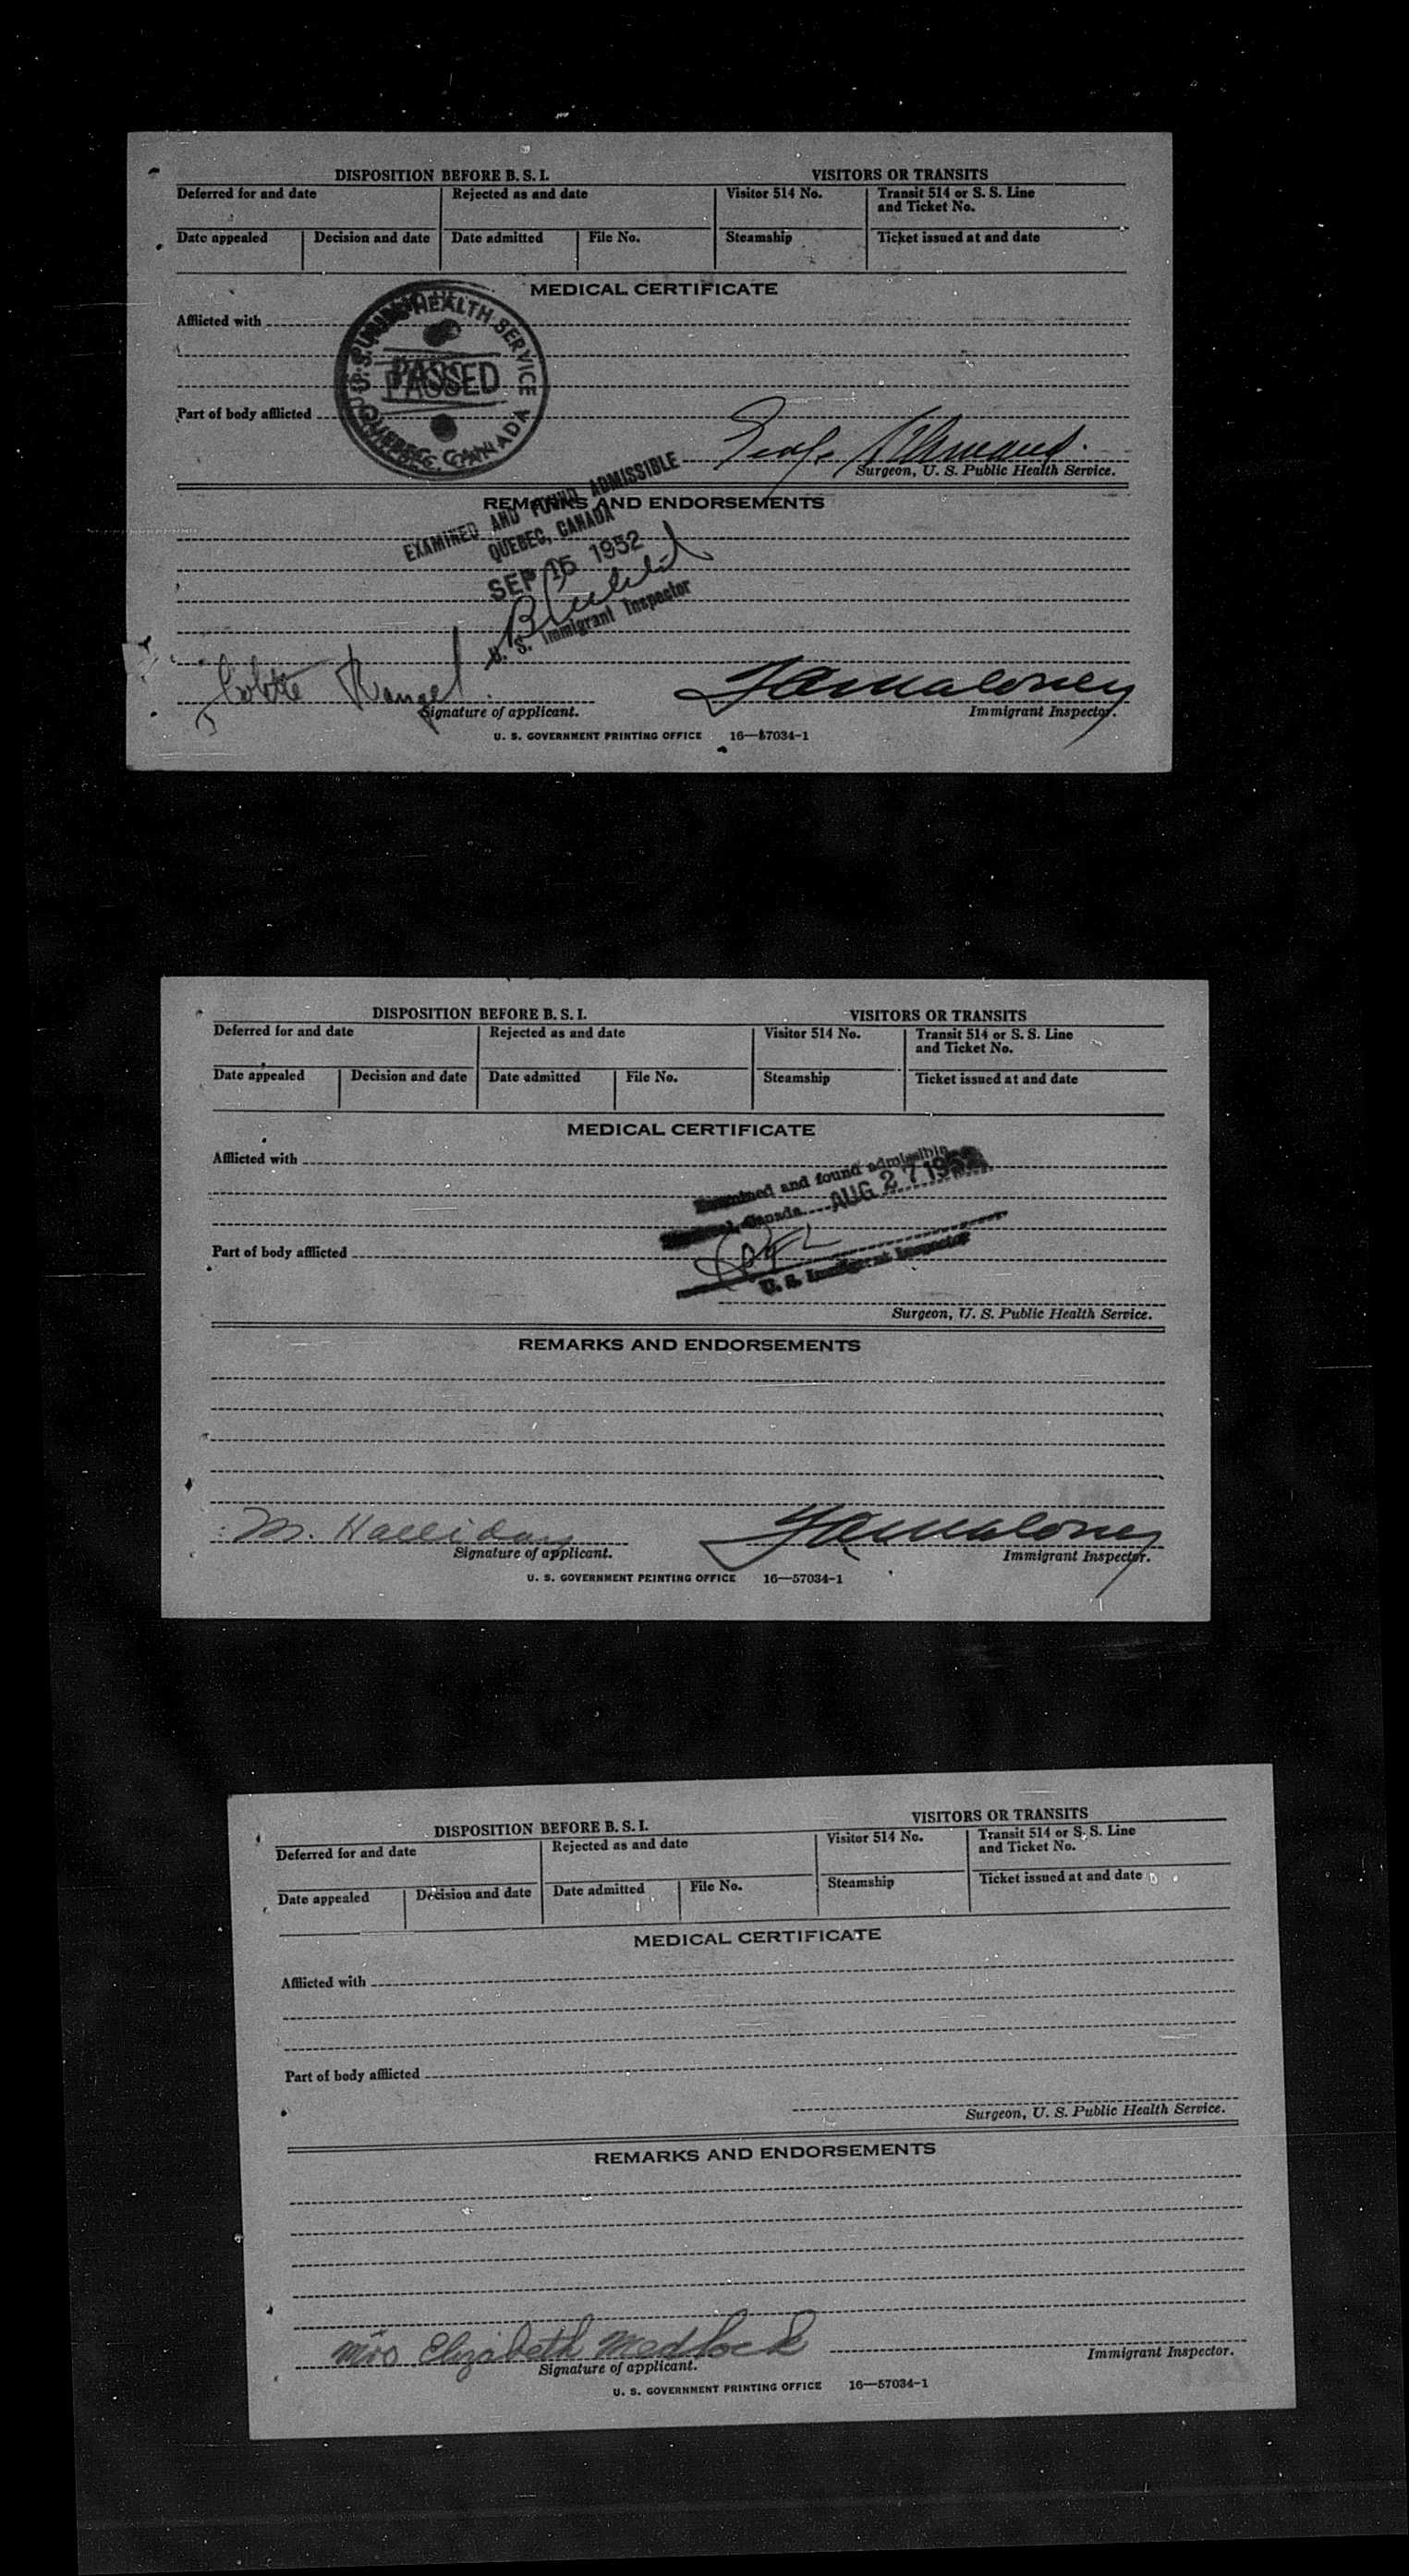 DISPOSITION BEFORE B. S. I. VISITORS OR TRANSITS
Deferred for and date Rejected as and date Visitor 514 No. Transit 514 or S. S. Line
and Ticket No.
Date appealed Decision and date Date admitted File No. Steamship Ticket issued at and date
MEDICAL CERTIFICATE
Afflicted with
U. S. PUBLIC HEALTH SERVICE
PASSED
QUEBEC, CANADA
Part of body afflicted
Surgeon, U. S. Public Health Service.
REMARKS AND ENDORSEMENTS
EXAMINED AND FOUND ADMISSIBLE
QUEBEC, CANADA
SEP 15 1952
U. S. Immigrant Inspector
Signature of applicant. Immigrant Inspector.
U. S. GOVERNMENT PRINTING OFFICE 16—57034-1
DISPOSITION BEFORE B. S. I. VISITORS OR TRANSITS
Deferred for and date Rejected as and date Visitor 514 No. Transit 514 or S. S. Line
and Ticket No.
Date appealed Decision and date Date admitted File No. Steamship Ticket issued at and date
MEDICAL CERTIFICATE
Afflicted with
Examined and found admissible
Canada AUG 27 1952
U. S. Immigrant Inspector
Part of body afflicted
Surgeon, U. S. Public Health Service.
REMARKS AND ENDORSEMENTS
M. Halliday
Signature of applicant. Immigrant Inspector.
U. S. GOVERNMENT PRINTING OFFICE 16—57034-1
DISPOSITION BEFORE B. S. I. VISITORS OR TRANSITS
Deferred for and date Rejected as and date Visitor 514 No. Transit 514 or S. S. Line
and Ticket No.
Date appealed Decision and date Date admitted File No. Steamship Ticket issued at and date
MEDICAL CERTIFICATE
Afflicted with
Part of body afflicted
Surgeon, U. S. Public Health Service.
REMARKS AND ENDORSEMENTS
Mrs Elizabeth Medlock
Signature of applicant. Immigrant Inspector.
U. S. GOVERNMENT PRINTING OFFICE 16—57034-1